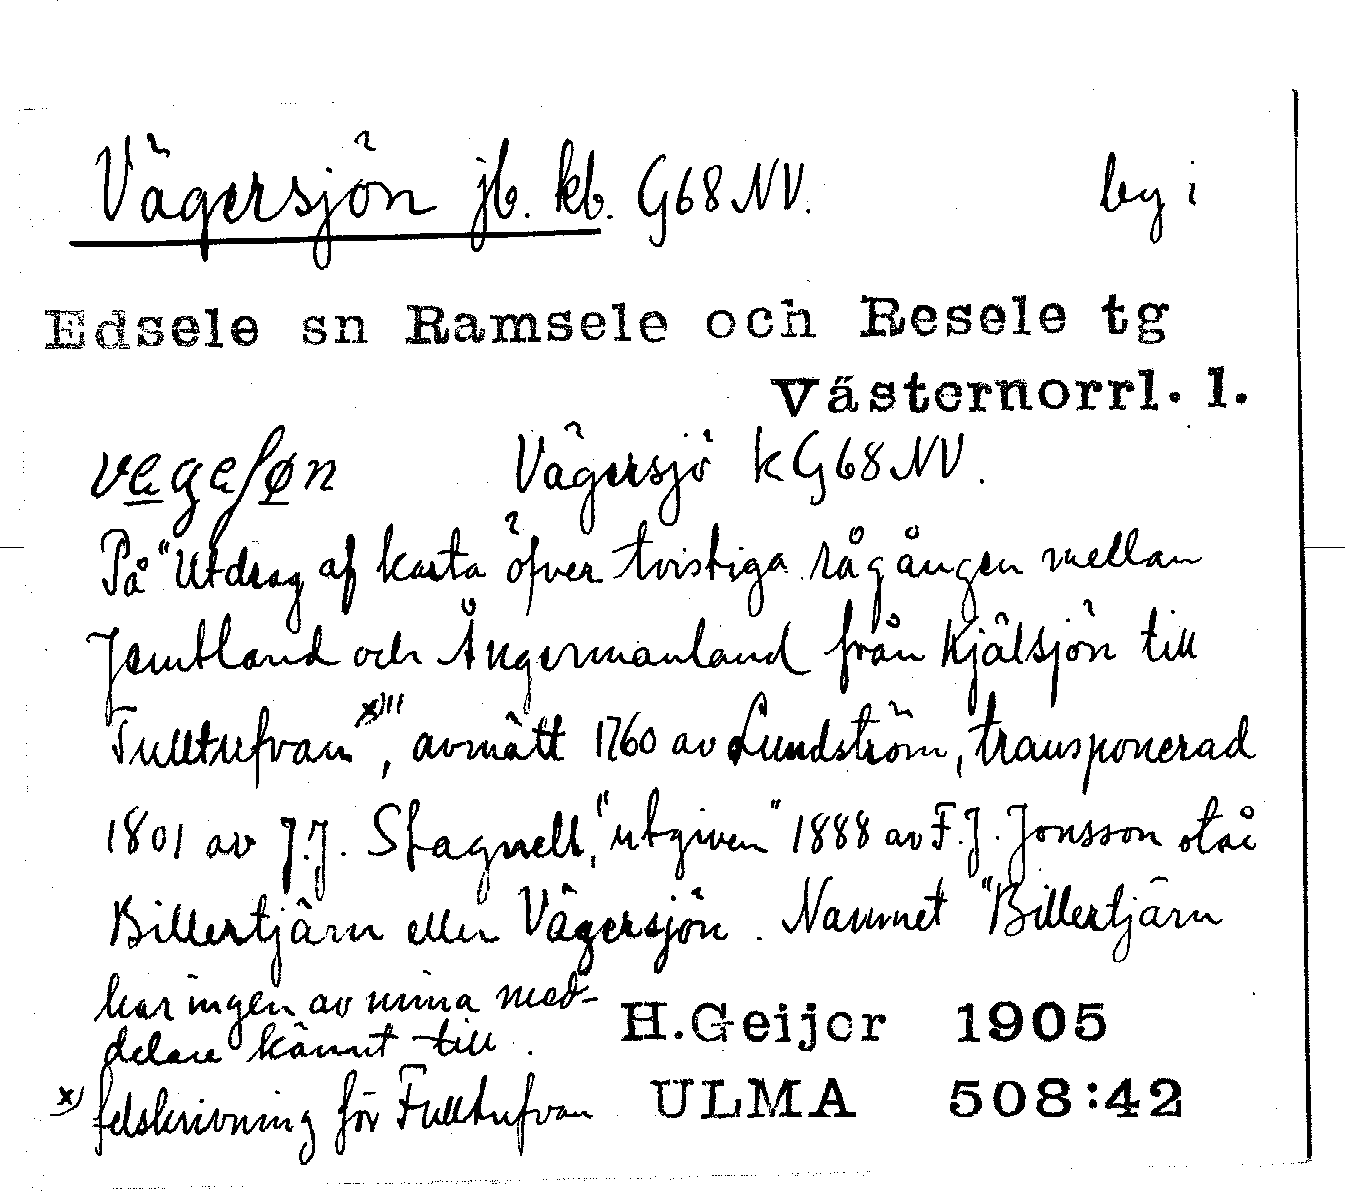 Vägersjön jb. kb. G68NV. by i
Edsele sn Ramsele och Resele tg
Västernorrl. l.
Vägersjö k G68NV.
På "Utdrag af karta öfver tvistiga rågången mellan
Jemtland och Ångermanland från Kjälsjön till
Tulltrefvan x)", avmätt 1760 av Lundström, transponerad
1801 av J.J. Stagnell, "utgiven" 1888 av F.J. Jonsson står
Billertjärn eller Vägersjön. Namnet "Billertjärn
har ingen av mina med-
delare kännt till.
H.Geijer 1905
x) felskrivning för Fulltrefvan
ULMA 508:42